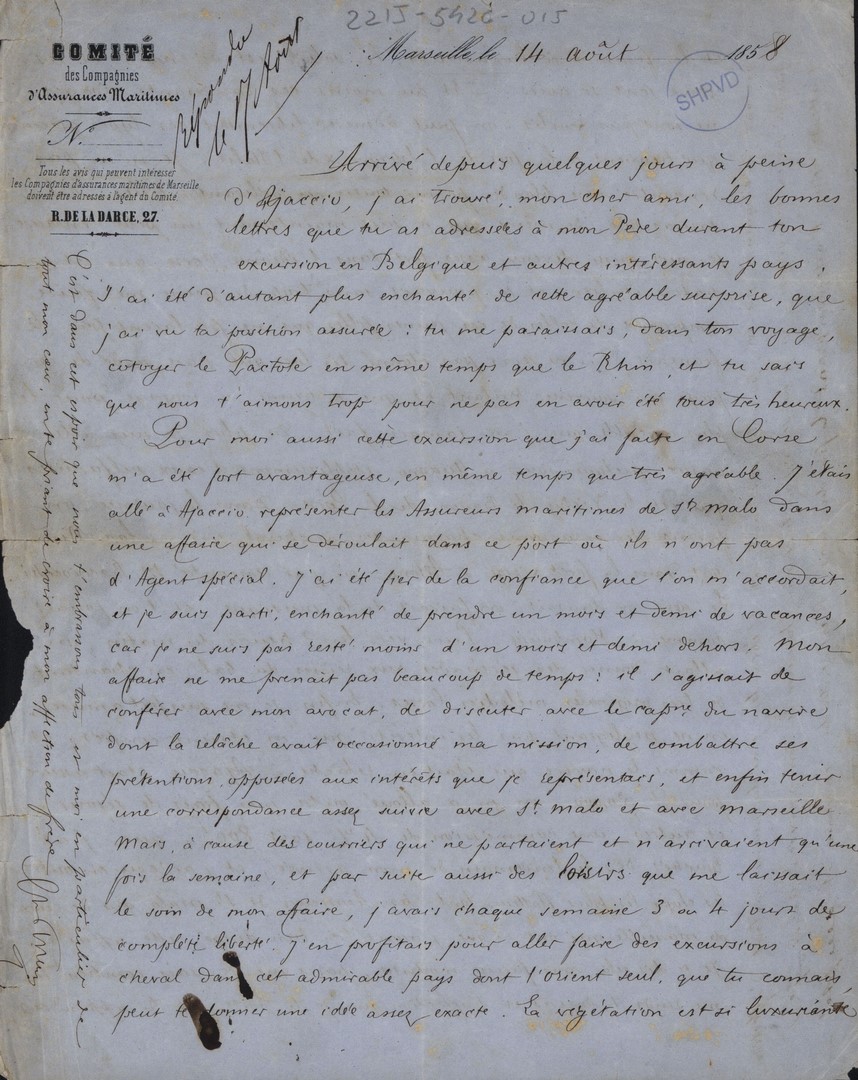 22IJ-5426-015
COMITÉ
des Compagnies
d'Assurances Maritimes
N°
Tous les avis qui peuvent intéresser
les Compagnies d'assurances maritimes de Marseille
doivent être adressés à l'agent du Comité.
R. DE LA DARCE, 27.
Répondu
le 17 Août
Marseille, le 14 août 1858
SHPVD
Arrivé depuis quelques jours à peine
d'Ajaccio, j'ai trouvé, mon cher ami, les bonnes
lettres que tu as adressées à mon Père durant ton
excursion en Belgique et autres intéressants pays.
J'ai été d'autant plus enchanté de cette agréable surprise, que
j'ai vu ta position assurée : tu me paraissais, dans ton voyage,
côtoyer le Pactole en même temps que le Rhin, et tu sais
que nous t'aimons trop pour ne pas en avoir été tous très heureux.
Pour moi aussi cette excursion que j'ai faite en Corse
m'a été fort avantageuse, en même temps que très agréable. J'étais
allé à Ajaccio représenter les Assureurs maritimes de St malo dans
une affaire qui se déroulait dans ce port où ils n'ont pas
d'Agent spécial. J'ai été fier de la confiance que l'on m'accordait,
et je suis parti, enchanté de prendre un mois et demi de vacances,
car je ne suis pas resté moins d'un mois et demi dehors. Mon
affaire ne me prenait pas beaucoup de temps : il s'agissait de
conférer avec mon avocat, de discuter avec le capne du navire
dont la relâche avait occasionné ma mission, de combattre ses
prétentions opposées aux intérêts que je représentais, et enfin tenir
une correspondance assez suivie avec St malo et avec Marseille
Mais, à cause des courriers qui ne partaient et n'arrivaient qu'une
fois la semaine, et par suite aussi des loisirs que me laissait
le soin de mon affaire, j'avais chaque semaine 3 ou 4 jours de
complète liberté. J'en profitais pour aller faire des excursions à
cheval dans cet admirable pays dont l'Orient seul, que tu connais,
peut te donner une idée assez exacte. La végétation est si luxuriante
C'est dans cet espoir que nous t'embrassons tous et moi en particulier de
tout mon cœur, en te priant de croire à mon affection de frère